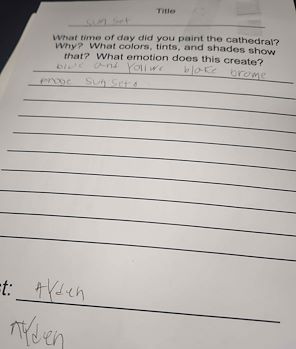 Title
sun set
What time of day did you paint the cathedral?
Why? What colors, tints, and shades show
that? What emotion does this create?
and yallwe blake brome
sun set
t: Ayden
Ayden